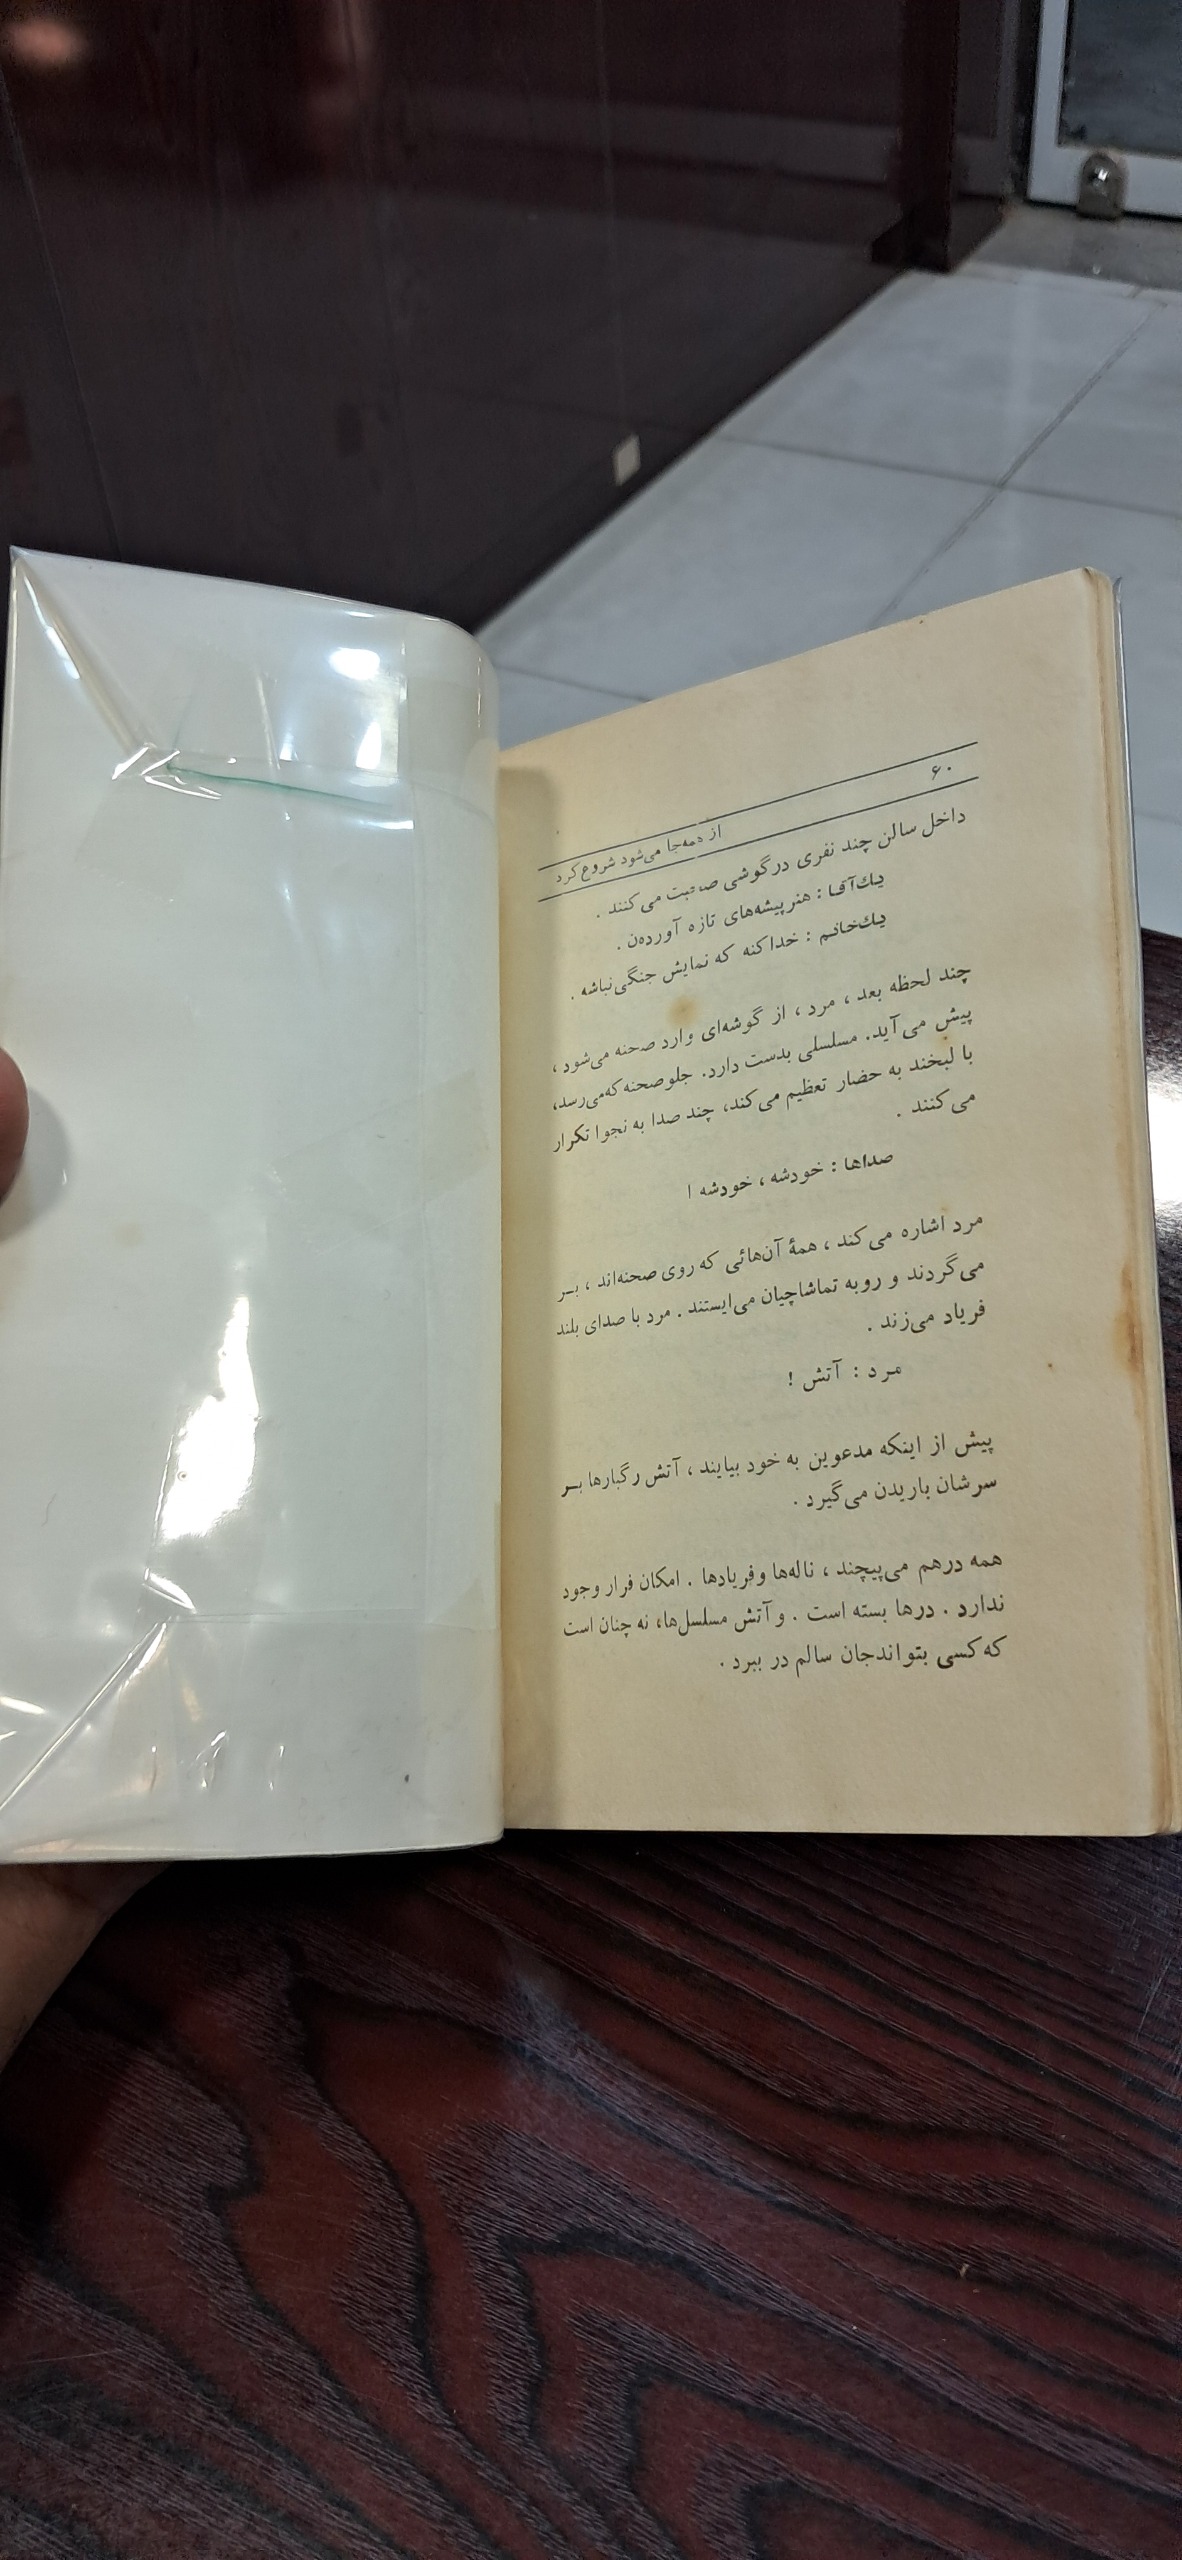 ۶۰
از همه‌جا می‌شود شروع کرد
داخل سالن چند نفری درگوشی صحبت می‌کنند .
یك‌آقا : هنرپیشه‌های تازه آورده‌ن .
یك‌خانم : خداکنه که نمایش جنگی نباشه .
چند لحظه بعد ، مرد ، از گوشه‌ای وارد صحنه می‌شود ،
پیش می‌آید. مسلسلی بدست دارد. جلوصحنه که‌می‌رسد،
با لبخند به حضار تعظیم می‌کند، چند صدا به نجوا تکرار
می‌کنند .
صداها : خودشه ، خودشه !
مرد اشاره می‌کند ، همهٔ آن‌هائی که روی صحنه‌اند ، بـر
می‌گردند و روبه تماشاچیان می‌ایستند . مرد با صدای بلند
فریاد می‌زند .
مرد : آتش !
پیش از اینکه مدعوین به خود بیایند ، آتش رگبارها بـر
سرشان باریدن می‌گیرد .
همه درهم می‌پیچند ، ناله‌ها وفریادها . امکان فرار وجود
ندارد . درها بسته است . و آتش مسلسل‌ها، نه چنان است
که کسی بتواندجان سالم در ببرد .